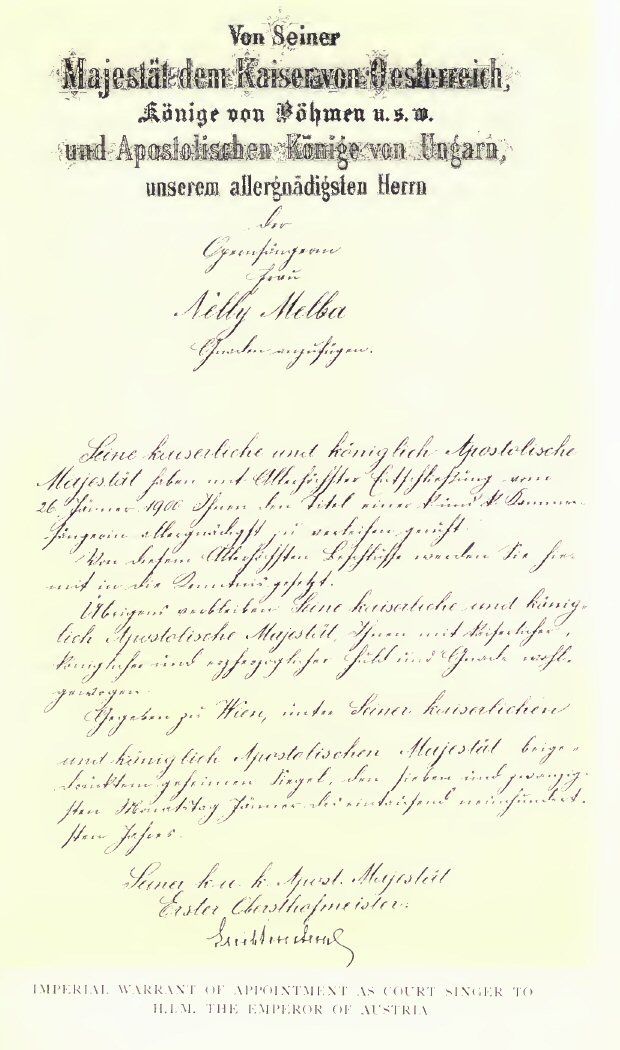 Von Seiner
Majestät dem Kaiser von Oesterreich,
Könige von Böhmen u.s.w.
und Apostolischen Könige von Ungarn,
unserem allergnädigsten Herrn
der
Opernsängerin
Frau
Nelly Melba
Gnaden anzufügen.
Seine kaiserliche und königlich Apostolische
Majestät haben mit Allerhöchster Entschließung vom
26. Jänner 1900 Ihnen den Titel einer k. und k. Kammer-
sängerin allergnädigst zu verleihen geruht.
Von diesem Allerhöchsten Beschlusse werden Sie hie-
mit in die Kenntnis gesetzt.
Übrigens verbleiben Seine kaiserliche und könig-
lich Apostolische Majestät, Ihnen mit kaiserlicher,
königlicher und erzherzoglicher Huld und Gnade wohl-
gewogen.
Gegeben zu Wien, unter Seiner kaiserlichen
und königlich Apostolischen Majestät beige-
drücktem geheimen Siegel, den sieben und zwanzig-
sten Monatstag Jänner des eintausend neunhundert-
sten Jahres.
Seiner k. u. k. Apost. Majestät
Erster Obersthofmeister:
IMPERIAL WARRANT OF APPOINTMENT AS COURT SINGER TO
H.I.M. THE EMPEROR OF AUSTRIA